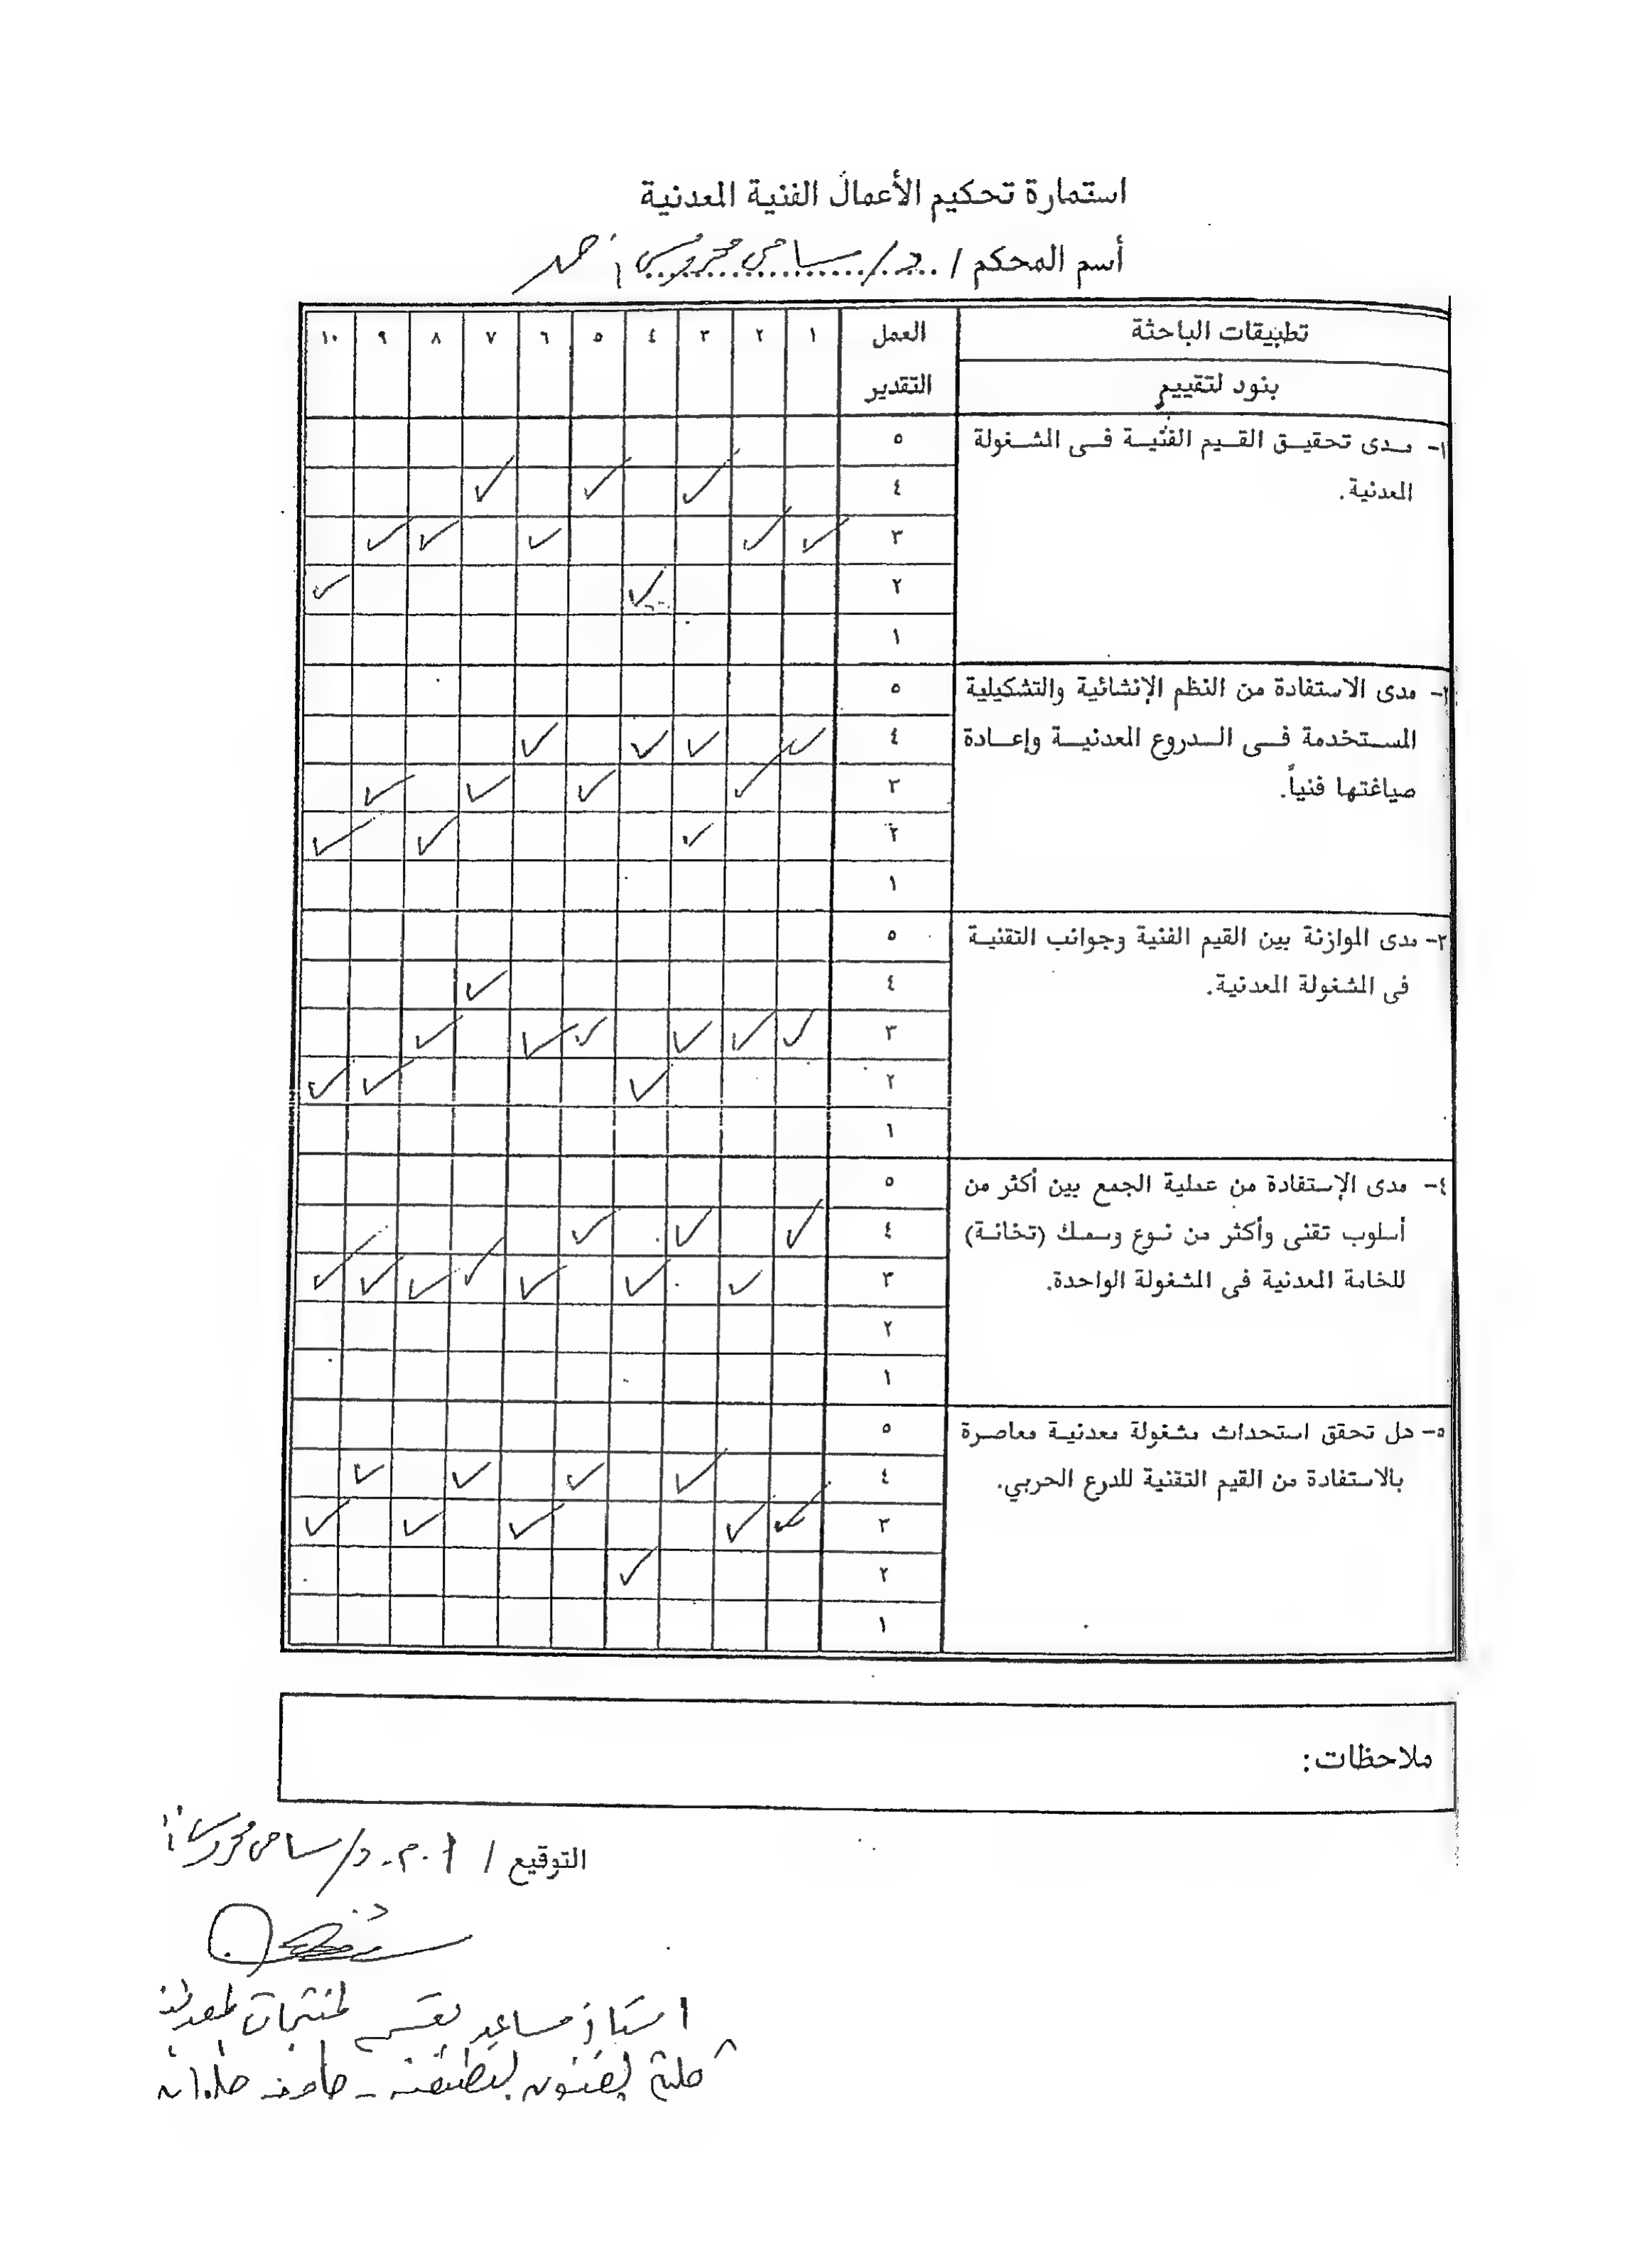 استمارة تحكيم الأعمال الفنية المعدنية
أسم المحكم / د/ سامى محروس أحمد
تطبيقات الباحثة العمل ١ ٢ ٣ ٤ ٥ ٦ ٧ ٨ ٩ ١٠
بنود لتقييم التقدير
١- مدى تحقيق القيم الفنية فى المشغولة ٥
المعدنية. ٤ ✓ ✓ ✓
٣ ✓ ✓ ✓ ✓ ✓
٢ ✓ ✓
١
٢- مدى الاستفادة من النظم الإنشائية والتشكيلية ٥
المستخدمة فى الدروع المعدنية وإعادة ٤ ✓ ✓ ✓ ✓
صياغتها فنياً. ٣ ✓ ✓ ✓ ✓
٢ ✓ ✓ ✓
١
٣- مدى الموازنة بين القيم الفنية وجوانب التقنية ٥
فى المشغولة المعدنية. ٤ ✓
٣ ✓ ✓ ✓ ✓ ✓ ✓
٢ ✓ ✓ ✓
١
٤- مدى الإستفادة من عملية الجمع بين أكثر من ٥
أسلوب تقنى وأكثر من نوع وسمك (تخانة) ٤ ✓ ✓ ✓
للخامة المعدنية فى المشغولة الواحدة. ٣ ✓ ✓ ✓ ✓ ✓ ✓ ✓
٢
١
٥- هل تحقق استحداث مشغولة معدنية معاصرة ٥
بالاستفادة من القيم التقنية للدرع الحربي. ٤ ✓ ✓ ✓ ✓
٣ ✓ ✓ ✓ ✓ ✓
٢ ✓
١
ملاحظات:
التوقيع / أ.م.د/ سامى محروس
استاذ مساعد بقسم المنتجات المعدنية
كلية الفنون التطبيقية - جامعة حلوان